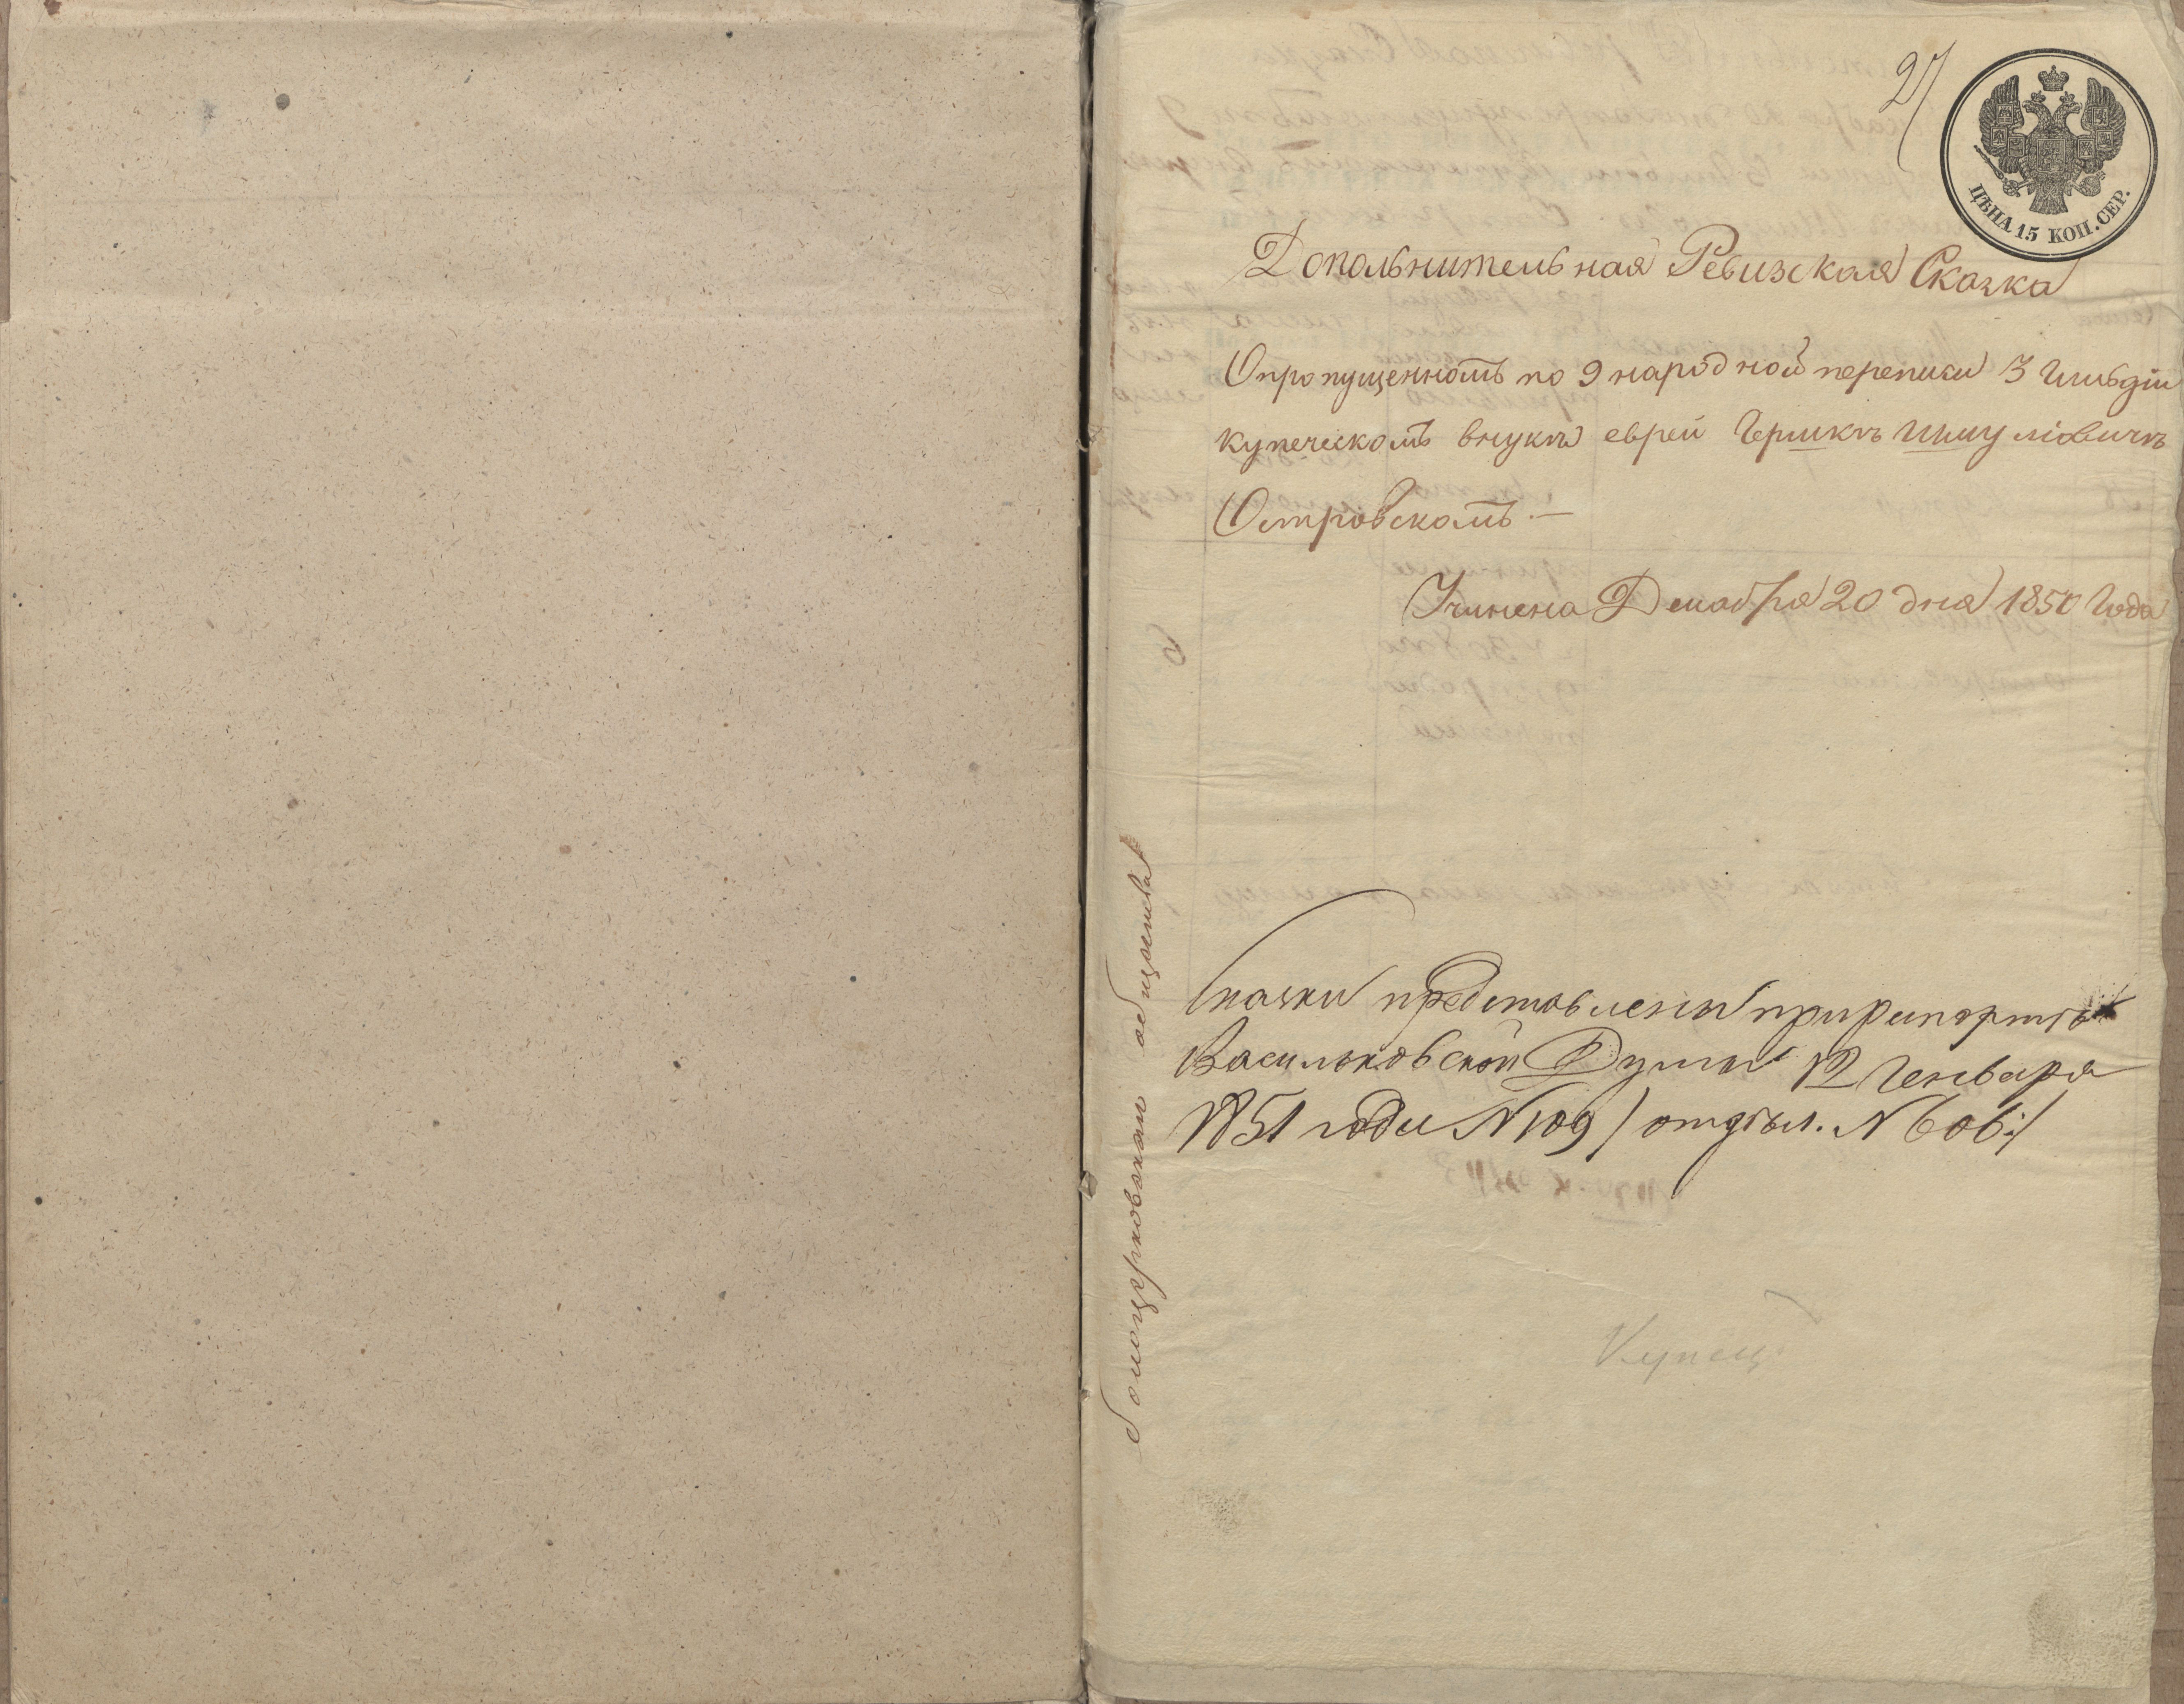 27
ЦѢНА 15 КОП. СЕР.
Допольнительная Ревизская Сказка
О пропущенномъ по 9 народной переписи 3 Гильдіи
купеческомъ внукѣ еврей Гершкѣ Шмулiовичѣ
Островскомъ.—
Учинена Декабря 20 дня 1850 Года
Сказки представлены при рапортѣ
Васильковской Думы 12 Генваря
1851 года N 109 / отдѣл. N 606:/
Купец
белоцерковскаго общества